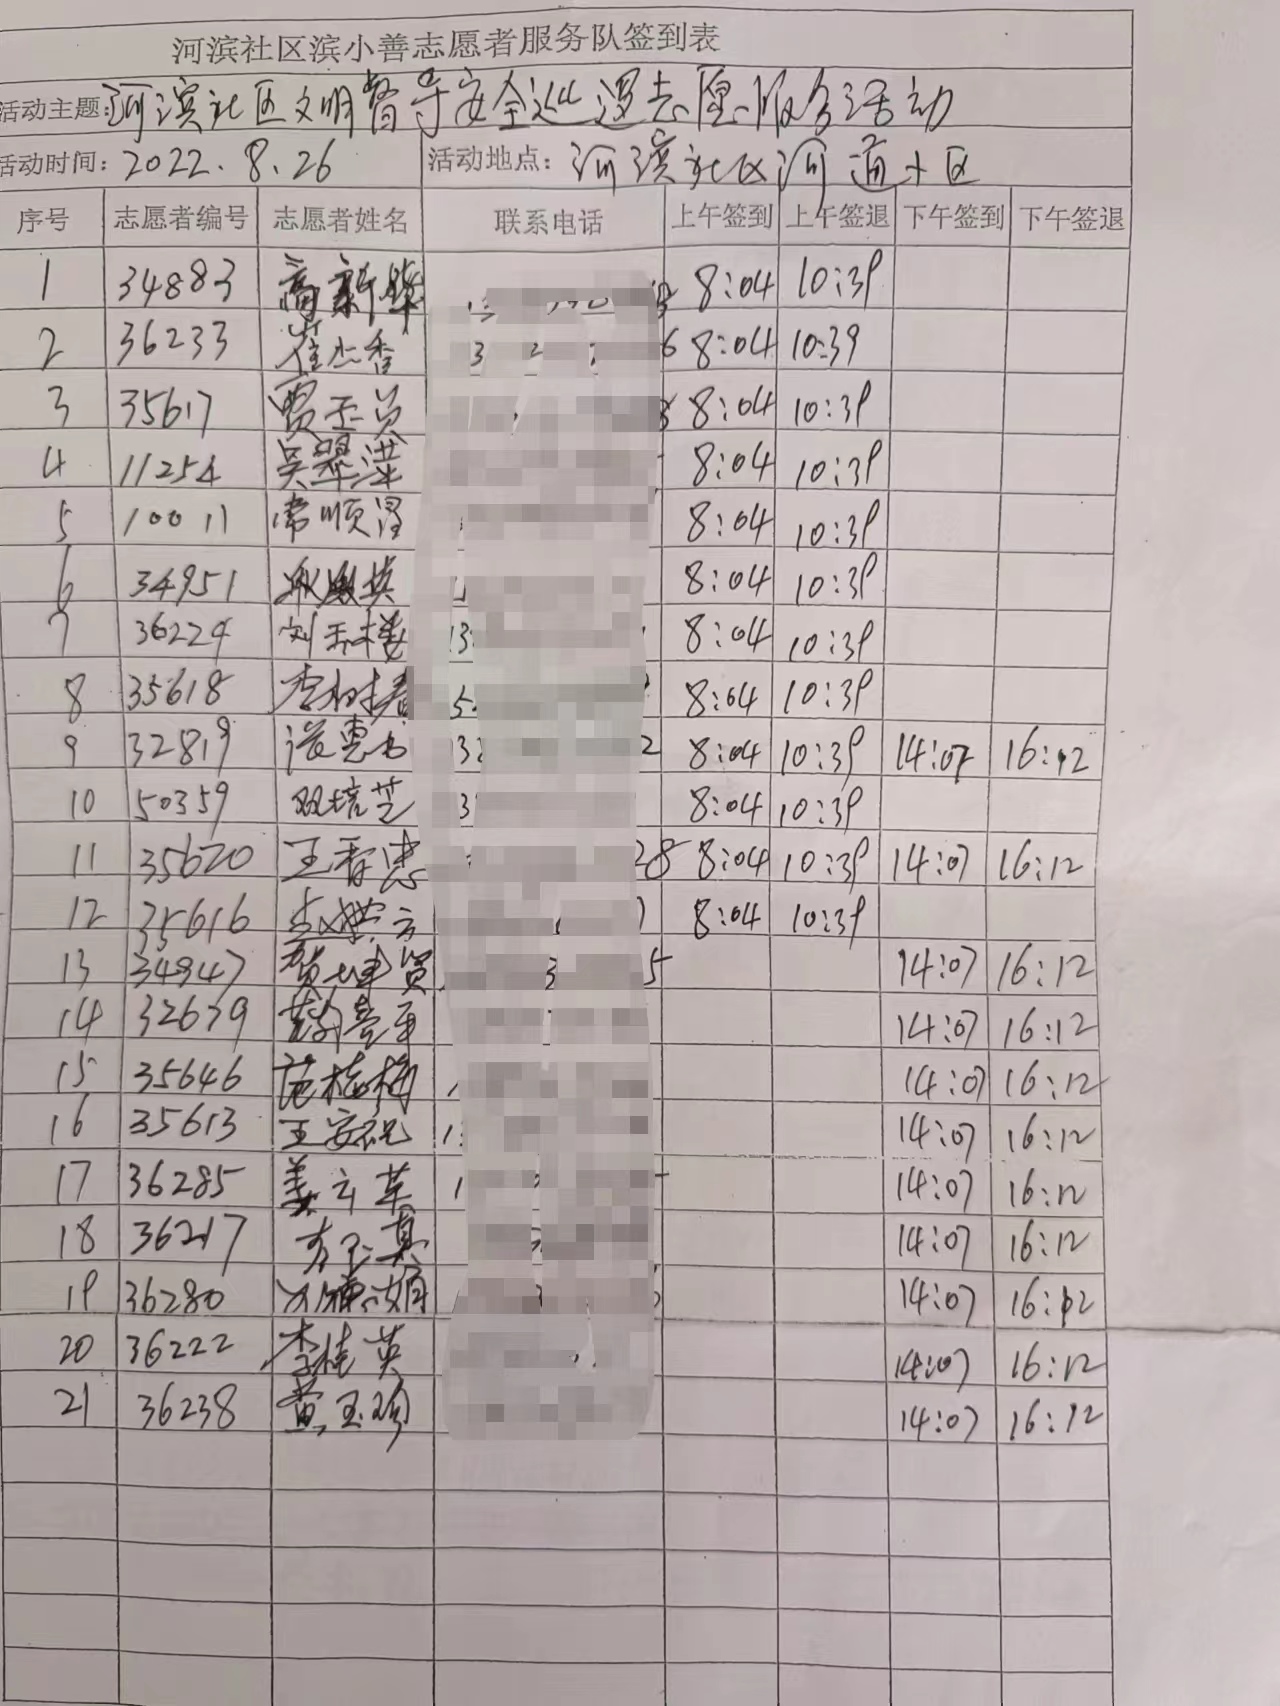 河滨社区滨小善志愿者服务队签到表
活动主题:河滨社区文明督导安全巡逻志愿服务活动
活动时间: 2022.8.26 活动地点: 河滨社区河道小区
序号 志愿者编号 志愿者姓名 联系电话 上午签到 上午签退 下午签到 下午签退
1 34883 高新 8:04 10:39
2 36233 崔杰香 3 2 6 8:04 10:39
3 35617 贾玉员 8:04 10:39
4 11254 吴翠 8:04 10:39
5 10011 常顺 8:04 10:39
6 34951 8:04 10:39
7 36224 刘玉楼 13 8:04 10:39
8 35618 李 春 8:04 10:39
9 32819 惠 2 8:04 10:39 14:07 16:12
10 50359 双培芝 3 8:04 10:39
11 35620 王香 28 8:04 10:39 14:07 16:12
12 35616 8:04 10:39
13 34947 贺 3 5 14:07 16:12
14 32639 14:07 16:12
15 35646 范 梅 14:07 16:12
16 35613 王安 14:07 16:12
17 36285 姜云 14:07 16:12
18 36217 玉真 14:07 16:12
19 36280 14:07 16:12
20 36222 李桂英 14:07 16:12
21 36238 黄玉珍 14:07 16:12